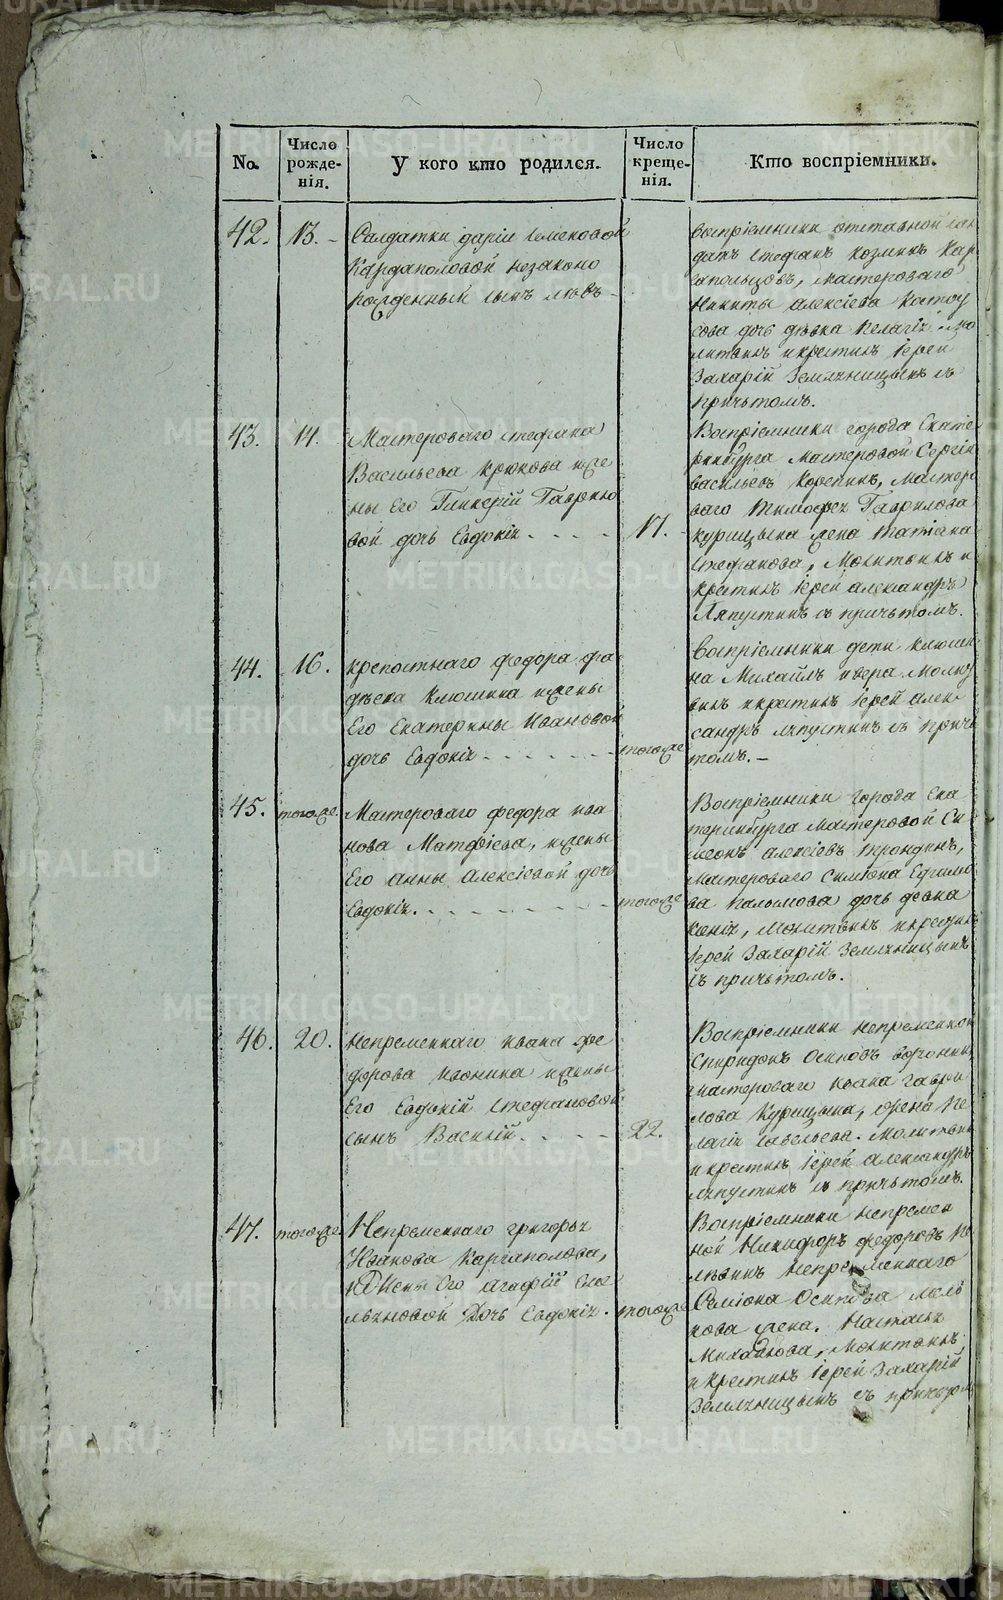 No.
Число рожде-нія.
У кого кто родился.
Число креще-нія.
Кто воспріемники.
42.
13. -
Салдатки даріи Семеновой
Кардаполовой незаконо
рожденный сынъ левъ
воспріемники отставной сол
датъ стефанъ козминъ Кар
сапольцовъ, мастероваго
Никиты алексіева
сова дочь девка Пелагія. мо
литвилъ и крестилъ іерей
Захарій Земляницынъ съ
причьтомъ.
43.
14.
Мастероваго стефана
Васильева крюкова и же
ны Его Гликерій Гаврило
вой дочь Евдокія . . . .
17. -
Воспріемники города Екате
ринбурга мастеровой Сергій
васильевъ Корепинъ, мастеро
ваго тимофея Гаврилова
курицына жена татіана
стефанова, Молитвилъ и
крестилъ іерей александръ
Ляпустинъ съ причьтомъ.
44.
16.
крепостнаго федора фа
дѣева клюшина и жены
Его Екатерины Ивановой
дочь Евдокія . . . . . . .
тогоже
Воспріемники дети клюши
на Михаилъ и вера. Молит
вилъ и крестилъ іерей алек
сандръ ляпустинъ съ причь
томъ. -
45.
тогоже
Мастероваго федора ива
нова Матфіева, и жены
Его анны Алексіевой дочь
Евдокія. . . . . . . . . .
тогоже
Воспріемники города ека
теринбурга мастеровой Си
меонъ алексіевъ трондинъ,
Мастероваго Симіона Ефимо
ва Пальмова дочь девка
ксенія, Молитвилъ и крестилъ
іерей Захарій Земляницынъ
съ причьтомъ.
46.
20.
Непременнаго ивана фе
дорова ионина и жены
Его Евдокій стефановой
сынъ Василій . . . . .
22.
Воспріемники непременной
Спиридонъ Осиповъ воронинъ
мастероваго ивана гаври
лова Курицына, жена Пе
лагія савельева. Молитвилъ
и крестилъ іерей александръ
ляпустинъ съ причьтомъ.
47.
тогоже
Непременнаго григорья
Иванова Каргаполова,
и жены Его агафій еме
льяновой Дочь Евдокія .
тогоже
Воспріемники непремен
ной Никифоръ федоровъ пе
лѣвинъ непременнаго
Симіона Осипова мель
кова жена. Настасья
Михайлова, Молитвилъ
и крестилъ іерей Захарій
Земляницынъ съ причьтомъ